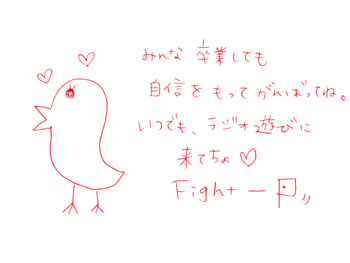 みんな 卒業しても
自信を もって がんばってね。
いつでも、ラジオ遊びに
来てちょ♡
Fight ー